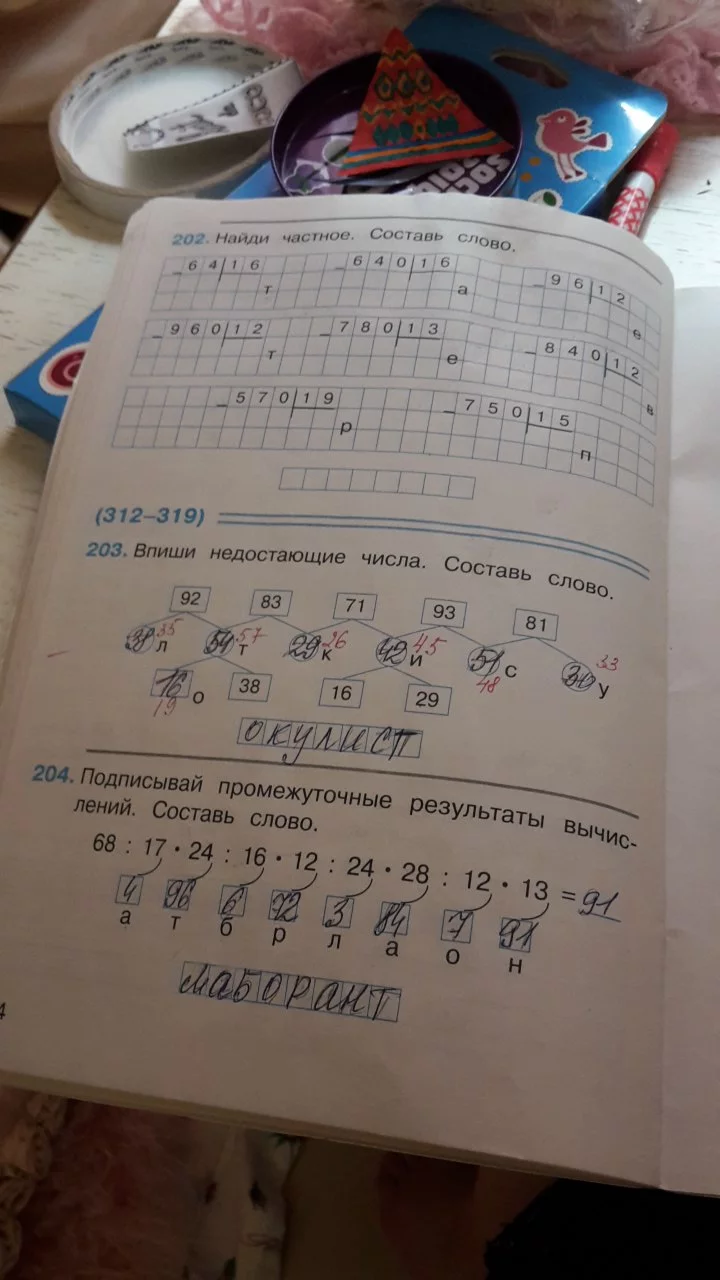 202. Найди частное. Составь слово.
64 16 т 640 16 а 96 12 е
960 12 т 780 13 е 840 12 в
570 19 р 750 15 п
(312–319)
203. Впиши недостающие числа. Составь слово.
92 83 71 93 81
38 35 л 54 57 т 29 26 к 42 45 и 51 48 с 30 33 у
16 19 о 38 16 29
ОКУЛИСТ
204. Подписывай промежуточные результаты вычис-
лений. Составь слово.
68 : 17 · 24 : 16 · 12 : 24 · 28 : 12 · 13 = 91
4 96 6 72 3 84 7 91
а т б р л а о н
ЛАБОРАНТ
4